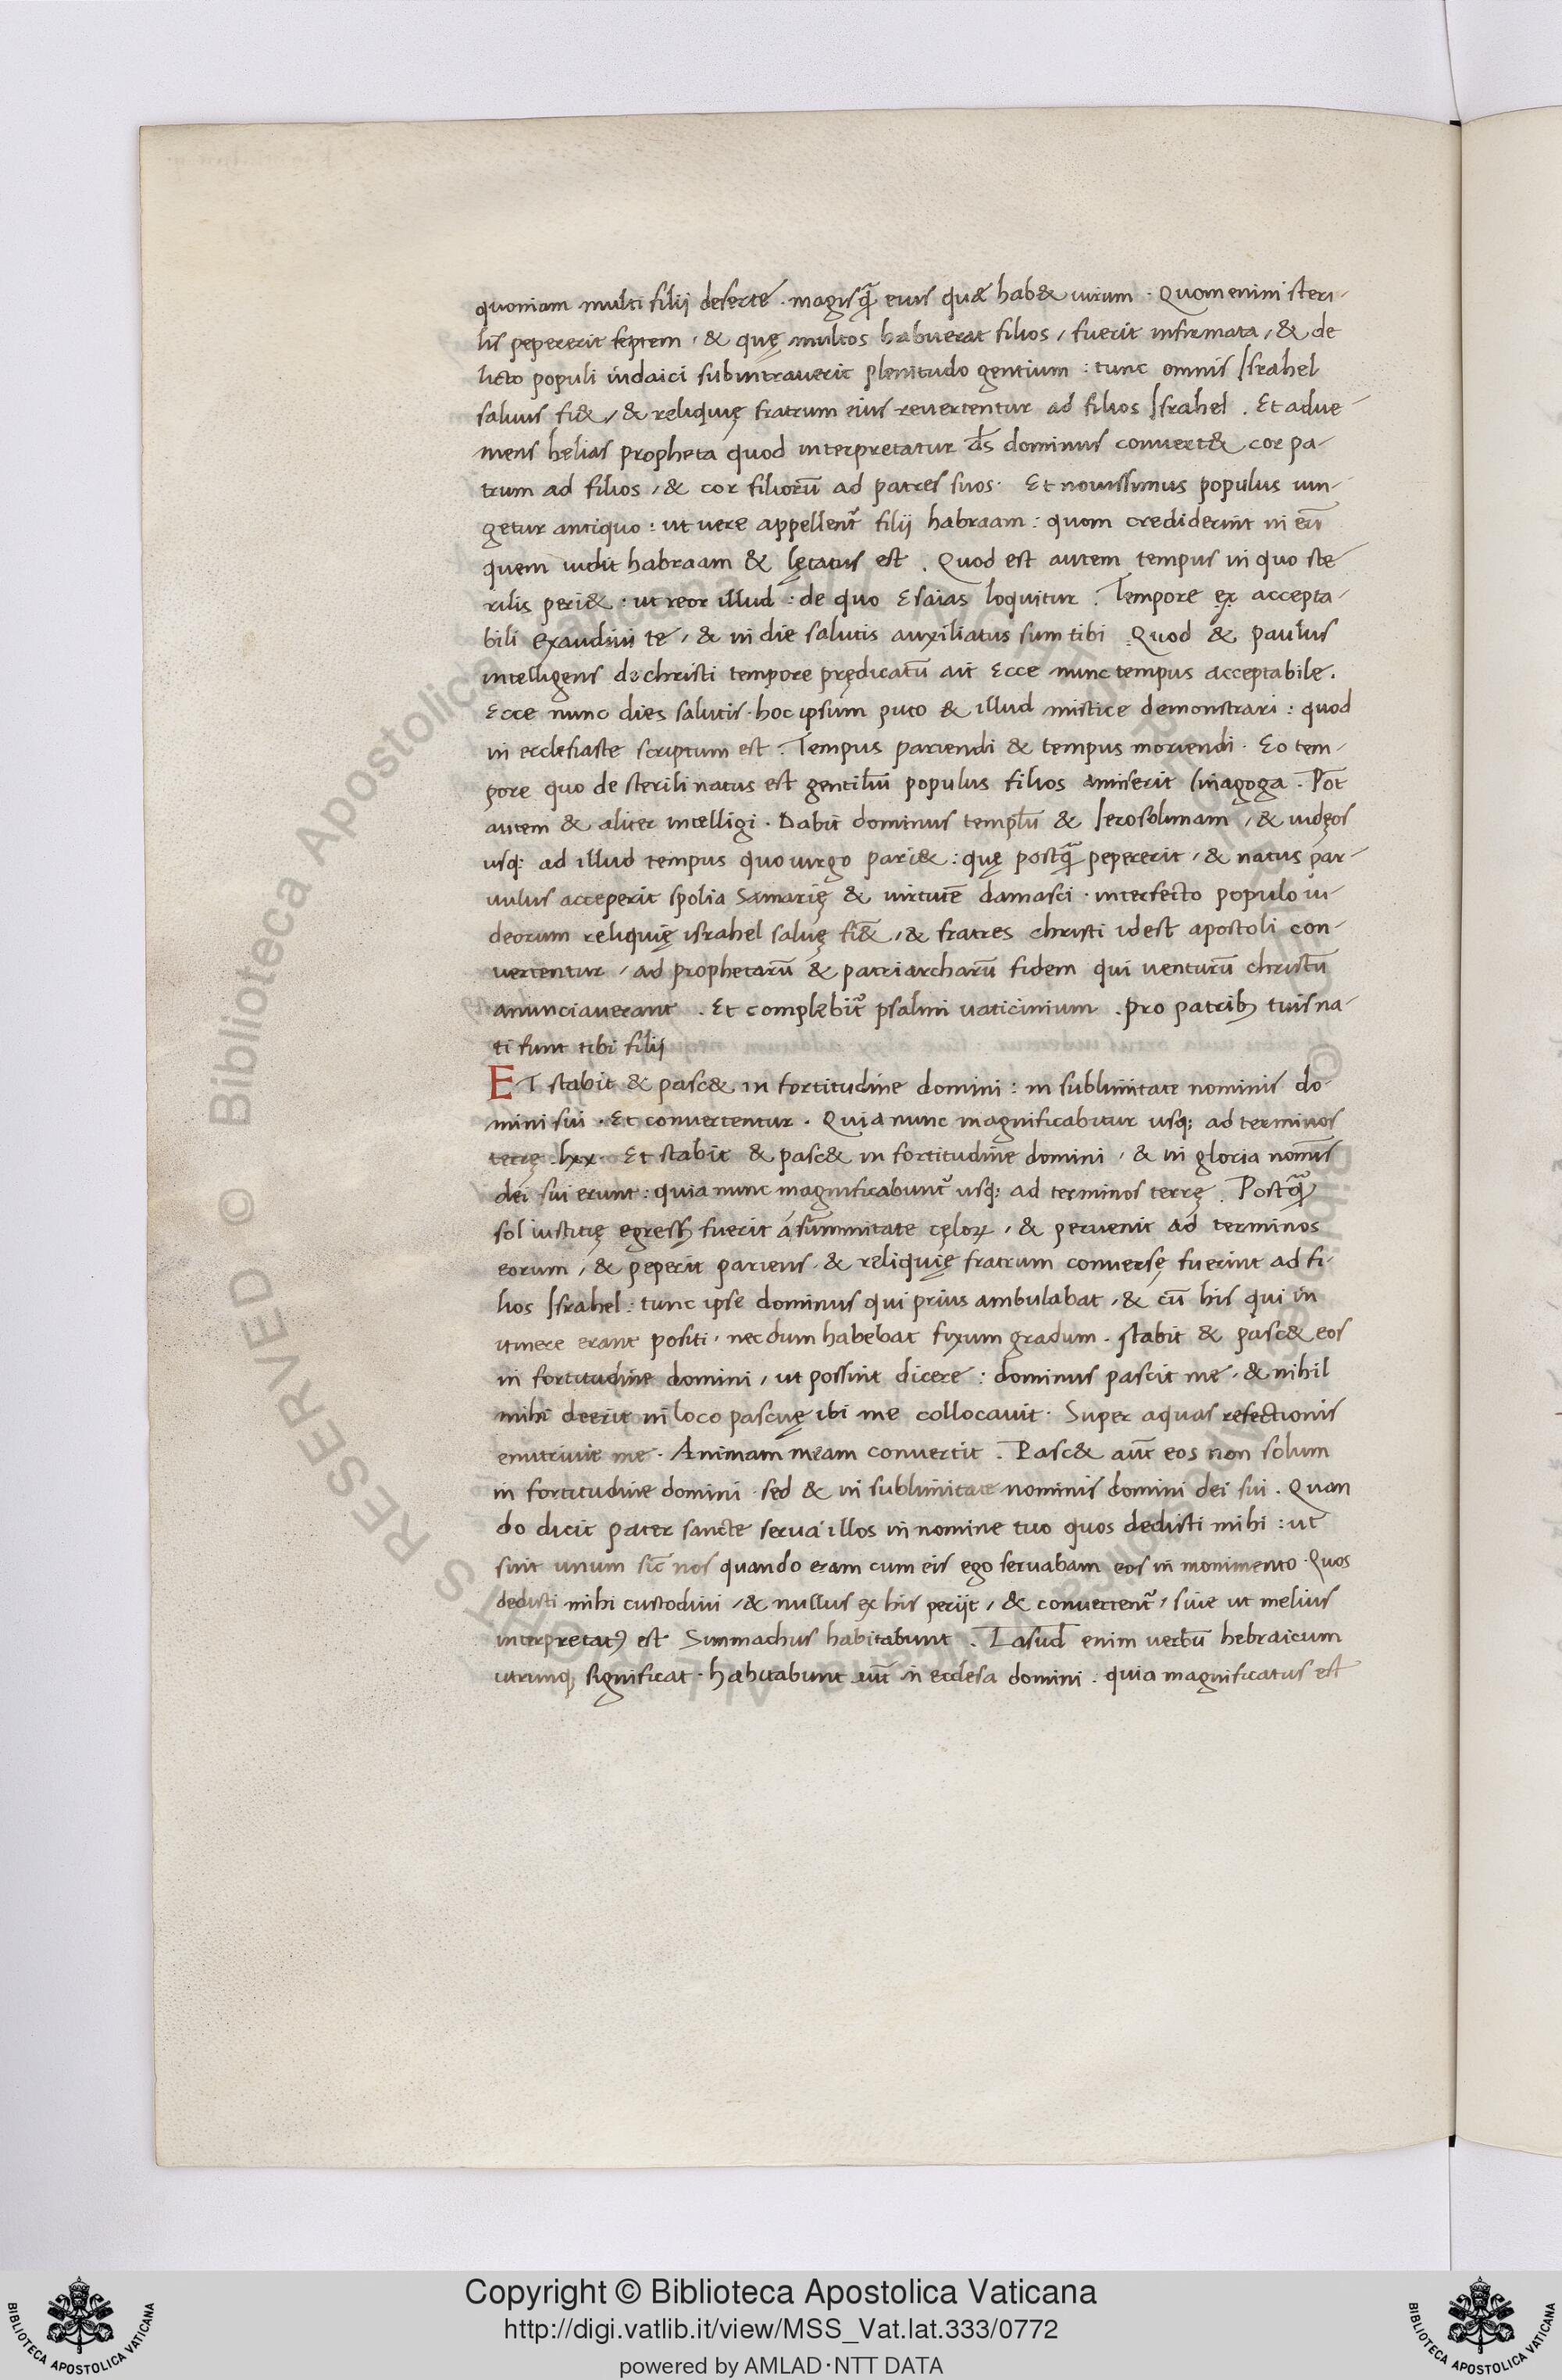 quoniam multi filij desertę . magisq̃ eius quæ hab& uirum . Quom enim steri-
lis pepererit septem , & quę multos habuerat filios , fuerit infirmata , & de
licto populi iudaici subintrauerit plenitudo gentium : tunc omnis Israhel
saluus fi& , & reliquię fratrum eius reuertentur ad filios Israhel . Et adue-
niens helias propheta quod interpretatur d̃s dominus conuert& cor pa-
trum ad filios , & cor filiorũ ad patres suos . Et nouissimus populus iun-
getur antiquo : ut uere appellent̃ filij habraam : quom crediderint in eũ
quem uidit habraam & lętatus est . Quod est autem tempus in quo ste
rilis peri& : ut reor illud : de quo Esaias loquitur . Tempore ex accepta-
bili exaudiui te , & in die salutis auxiliatus sum tibi . Quod & paulus
intelligens de christi tempore prędicatũ ait Ecce nunc tempus acceptabile .
Ecce nunc dies salutis . hoc ipsum puto & illud mistice demonstrari : quod
in ecclesiaste scriptum est . Tempus pariendi & tempus moriendi . Eo tem-
pore quo de sterili natus est gentiliũ populus filios amiserit sinagoga . Põt
autem & aliter intelligi . Dabit dominus templũ & Ierosolimam , & iudęos
usq; ad illud tempus quo uirgo pari& : quę postq̃ pepererit , & natus par-
uulus acceperit spolia Samarię & uirtutẽ damasci . interfecto populo iu-
deorum reliquię israhel saluę fiẽt , & fratres christi idest apostoli con-
uertentur , ad prophetarũ & patriarcharũ fidem qui uenturũ christũ
anunciauerant . Et complebit̃ psalmi uaticinium . pro patrib; tuis na-
ti sunt tibi filij
ET stabit & pasc& in fortitudine domini : in sublimitate nominis do-
mini sui . Et conuertentur . Quia nunc magnificabitur usq; ad terminos
terrę . lxx . Et stabit & pasc& in fortitudine domini , & in gloria nomĩs
dei sui erunt : quia nunc magnificabunt̃ usq; ad terminos terrę . Postq̃
sol iustitię egress; fuerit a sũmmitate cęloꝝ , & peruenit ad terminos
eorum , & peperit pariens . & reliquię fratrum conuersę fuerint ad fi-
lios Israhel : tunc ipse dominus qui prius ambulabat , & cũ his qui in
itinere erant positi , necdum habebat fixum gradum . stabit & pasc& eos
in fortitudine domini , ut possint dicere : dominus pascit me , & nihil
mihi deerit in loco pascuę ibi me collocauit . Super aquas refectionis
enutriuit me . Animam meam conuertit . Pasc& aũt eos non solum
in fortitudine domini . sed & in sublimitate nominis domini dei sui . Quan
do dicit pater sancte serua illos in nomine tuo quos dedisti mihi : ut
sint unum sic̃ nos quando eram cum eis ego seruabam eos in monimento . Quos
dedisti mihi custodiui , & nullus ex his perijt , & conuertent̃ , siue ut melius
interpretatꝰ est Simmachus habitabunt . Iasud̃ enim uerbũ hebraicum
utrunq; significat . habitabunt aũt in ecclesa domini . quia magnificatus est
BIBLIOTECA APOSTOLICA VATICANA
Copyright © Biblioteca Apostolica Vaticana
http://digi.vatlib.it/view/MSS_Vat.lat.333/0772
powered by AMLAD·NTT DATA
BIBLIOTECA APOSTOLICA VATICANA